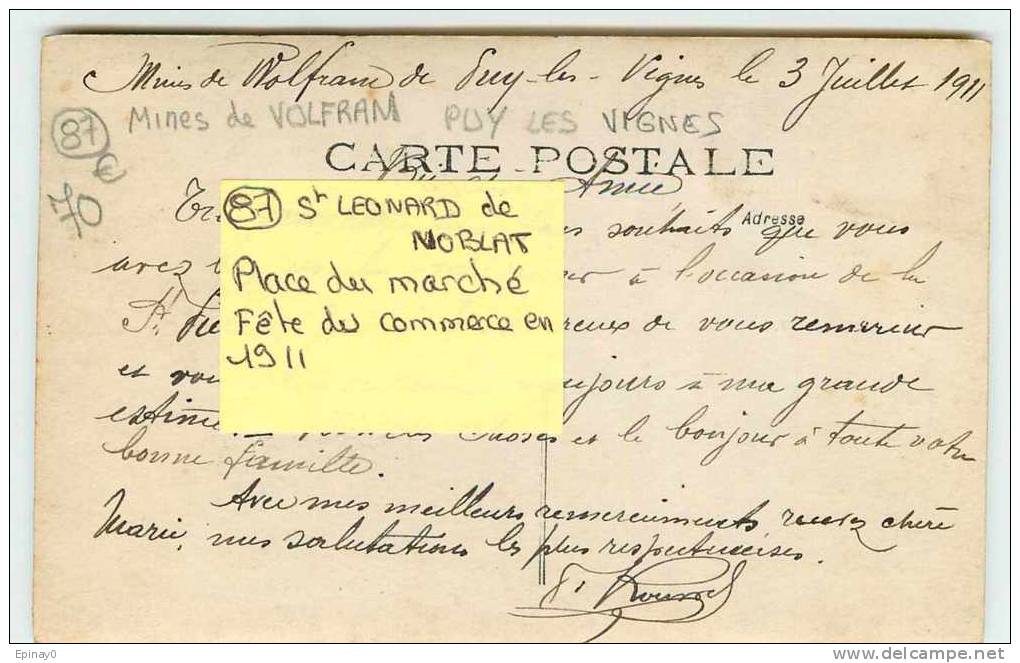 Mines de Wolfram de Puy-les-Vignes le 3 Juillet 1911
87 Mines de VOLFRAM PUY LES VIGNES
€
70
CARTE POSTALE
Amie
Adresse
87 St LEONARD de
NOBLAT
Place du marché
Fête du commerce en
1911
souhaits que vous
avez à l'occasion de la
St de vous remercier
et à ma grande
et le bonjour à toute votre
bonne famille.
Avec mes meilleurs remerciments recevez chère
Marie, mes salutations les plus respectueuses.
Epinay0
delcampe.net